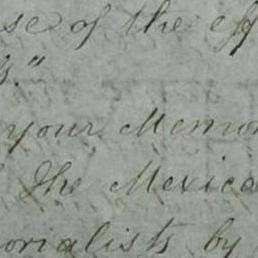 se of the eff
your Memor
The Mexica
orialists by